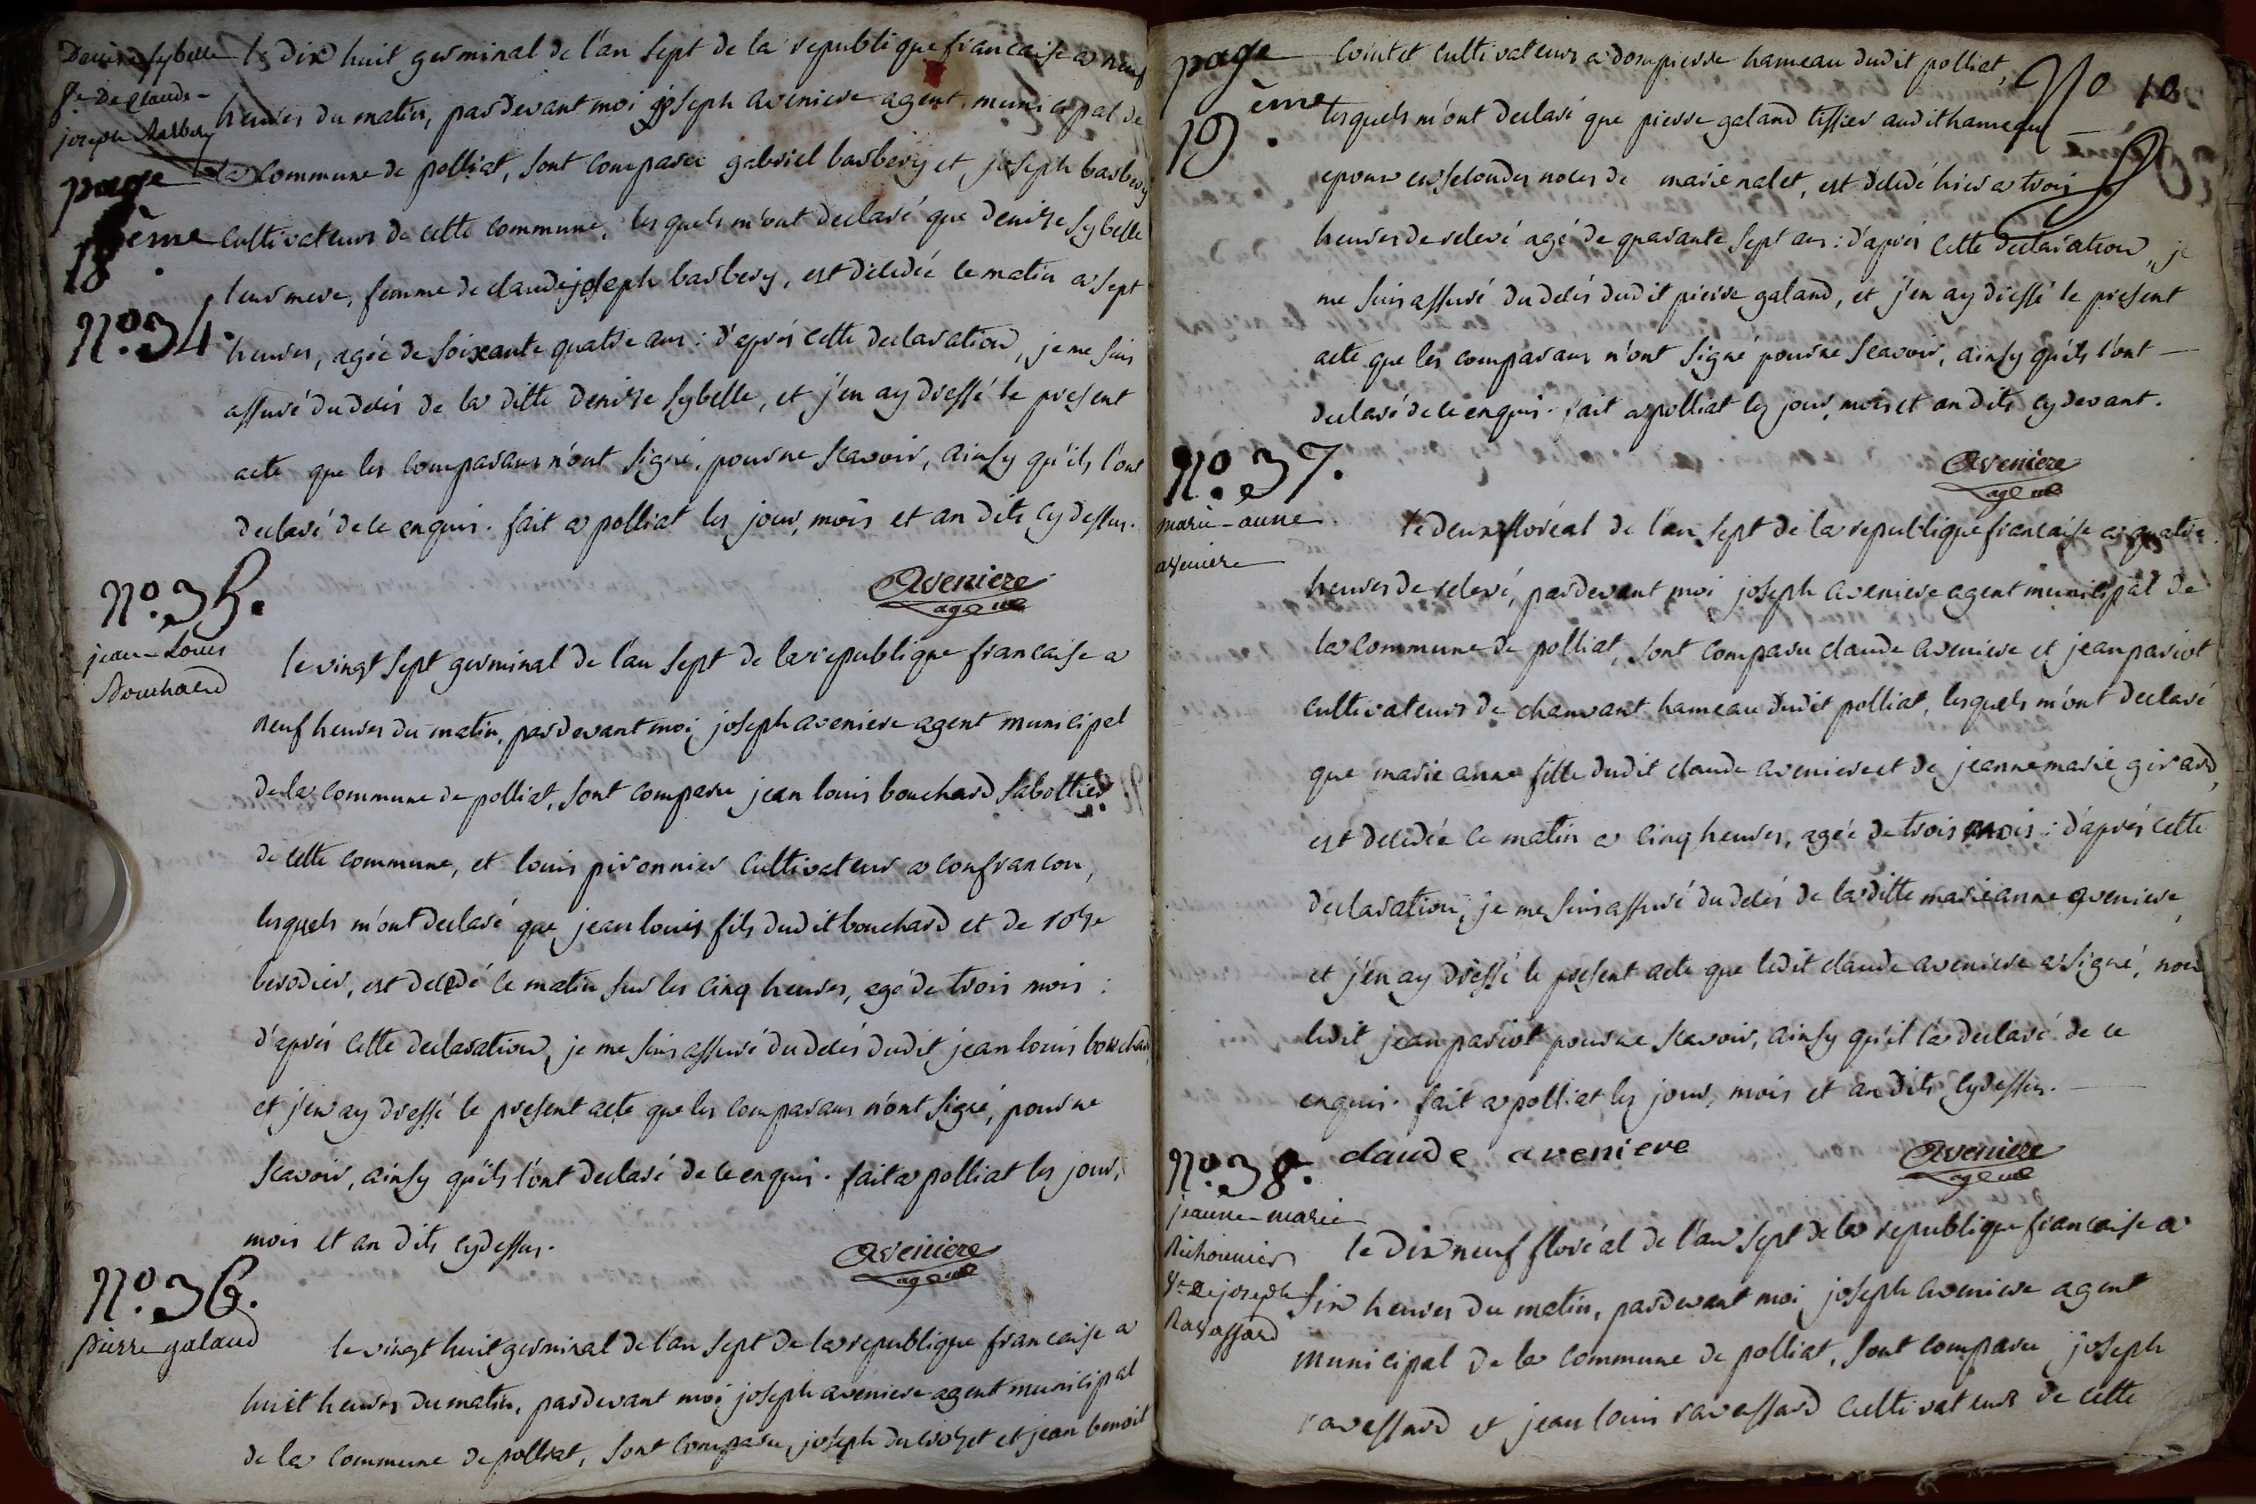 Denise Sybelle
fe. De claude-
joseph Barbery
page
18ème.
No. 34.
le dix huit germinal de l'an sept de la republique francaise a neuf
heures du matin, pardevant moi joseph aveniere agent municipal de
la commune de polliat, sont comparu gabriel barbery et joseph barbery
cultivateurs de cette commune, lesquels m'ont declaré que denise sybelle
leur mere, femme de claude joseph barbery, est décédée ce matin a sept
heures, agée de soixante quatre ans : d'aprés cette declaration, je me suis
assuré du décés de la ditte denise sybelle, et j'en ay dressé le present
acte que les comparans n'ont signé, pour ne scavoir, ainsy qu'ils l'ont
declaré de ce enquis. fait a polliat les jour, mois et an dits cy dessus.
Aveniere
agent
No. 35.
jean-Louis
Bouchard
le vingt sept germinal de l'an sept de la republique francaise a
neuf heures du matin, pardevant moi joseph aveniere agent municipal
de la commune de polliat, sont comparu jean louis bouchard sabottier
de cette commune, et louis pironnier cultivateur a confrancon,
lesquels m'ont declaré que jean louis fils dudit bouchard et de rose
berodier, est décédé ce matin sur les cinq heures, agé de trois mois :
d'aprés cette declaration, je me suis assuré du décés dudit jean louis bouchard
et j'en ay dressé le present acte que les comparans n'ont signé, pour ne
scavoir, ainsy qu'ils l'ont declaré de ce enquis. fait a polliat les jour,
mois et an dits cydessus.
Aveniere
agent
No. 36.
pierre galand
le vingt huit germinal de l'an sept de la republique francaise a
huit heures du matin, pardevant moi joseph aveniere agent municipal
de la commune de polliat, sont comparu joseph ducrozet et jean benoit
page
19ème.
No 10
cointet cultivateurs a dompierre hameau dudit polliat,
lesquels m'ont declaré que pierre galand tissier audit hameau
epoux en secondes noces de marie nalet, est décédé hier a trois
heures de relevé agé de quarante sept ans : d'aprés cette declaration, je
me suis assuré du décés dudit pierre galand, et j'en ay dressé le present
acte que les comparans n'ont signé pour ne scavoir, ainsy qu'ils l'ont
declaré de ce enquis. fait a polliat les jour, mois et an dits cy devant.
Aveniere
agent
No. 37.
marie-anne
aveniere
le deux floréal de l'an sept de la republique francaise a quatre
heures de relevé, pardevant moi joseph aveniere agent municipal de
la commune de polliat, sont comparu claude aveniere et jean pariot
cultivateurs de chanvant hameau dudit polliat, lesquels m'ont declaré
que marie anne fille dudit claude aveniere et de jeanne marie girard,
est decedée ce matin a cinq heures, agée de trois mois : d'aprés cette
declaration, je me suis assuré du décés de la ditte marie anne aveniere,
et j'en ay dressé le present acte que ledit claude aveniere a signé, non
ledit jean pariot pour ne scavoir, ainsy qu'il l'a declaré de ce
enquis. fait a polliat les jour, mois et an dits cydessus.
claude aveniere
Aveniere
agent
No. 38.
jeanne-marie
fe. de joseph
Ravassard
le dix neuf floréal de l'an sept de la republique francaise a
six heures du matin, pardevant moi joseph aveniere agent
municipal de la commune de polliat, sont comparu joseph
ravassard et jean louis ravassard cultivateurs de cette